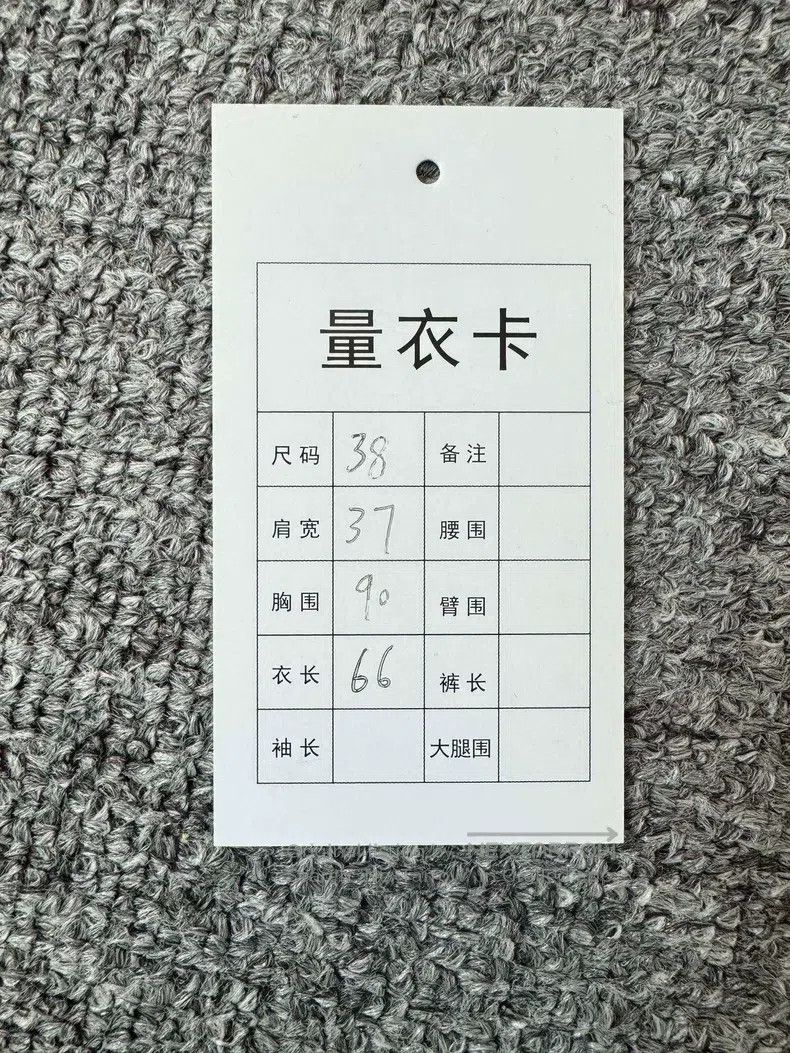 量衣卡
尺码 38 备注
肩宽 37 腰围
胸围 90 臂围
衣长 66 裤长
袖长 大腿围